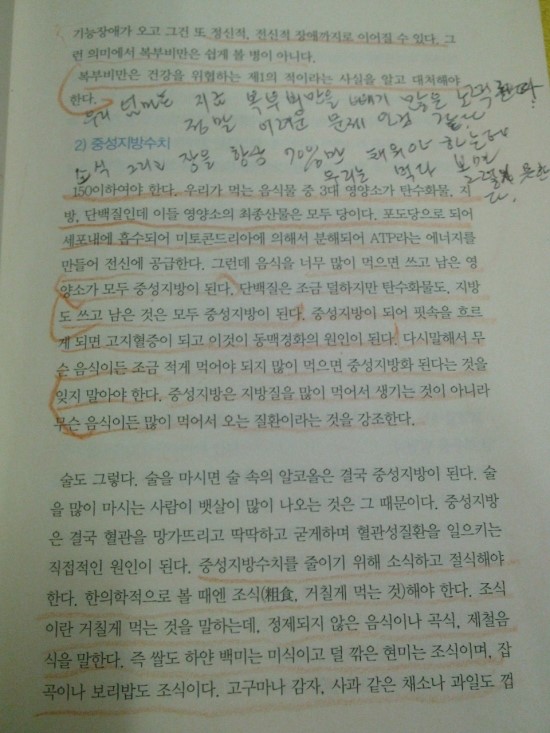 기능장애가 오고 그건 또 정신적, 전신적 장애까지로 이어질 수 있다. 그
런 의미에서 복부비만은 쉽게 볼 병이 아니다.
복부비만은 건강을 위협하는 제1의 적이라는 사실을 알고 대처해야
한다.
우리 엄마는 지금 복부비만을 빼기 많은 노력한다.
정말 어려운 문제 인것 같다
2) 중성지방수치
소식 그리고 장을 항상 70%만 채워야 하는데
우리는 먹다 보면 그렇지 못한
다.
150이하여야 한다. 우리가 먹는 음식물 중 3대 영양소가 탄수화물, 지
방, 단백질인데 이들 영양소의 최종산물은 모두 당이다. 포도당으로 되어
세포내에 흡수되어 미토콘드리아에 의해서 분해되어 ATP라는 에너지를
만들어 전신에 공급한다. 그런데 음식을 너무 많이 먹으면 쓰고 남은 영
양소가 모두 중성지방이 된다. 단백질은 조금 덜하지만 탄수화물도, 지방
도 쓰고 남은 것은 모두 중성지방이 된다. 중성지방이 되어 핏속을 흐르
게 되면 고지혈증이 되고 이것이 동맥경화의 원인이 된다. 다시말해서 무
슨 음식이든 조금 적게 먹어야 되지 많이 먹으면 중성지방화 된다는 것을
잊지 말아야 한다. 중성지방은 지방질을 많이 먹어서 생기는 것이 아니라
무슨 음식이든 많이 먹어서 오는 질환이라는 것을 강조한다.
술도 그렇다. 술을 마시면 술 속의 알코올은 결국 중성지방이 된다. 술
을 많이 마시는 사람이 뱃살이 많이 나오는 것은 그 때문이다. 중성지방
은 결국 혈관을 망가뜨리고 딱딱하고 굳게하며 혈관성질환을 일으키는
직접적인 원인이 된다. 중성지방수치를 줄이기 위해 소식하고 절식해야
한다. 한의학적으로 볼 때엔 조식(粗食, 거칠게 먹는 것)해야 한다. 조식
이란 거칠게 먹는 것을 말하는데, 정제되지 않은 음식이나 곡식, 재철음
식을 말한다. 즉 쌀도 하얀 백미는 미식이고 덜 깎은 현미는 조식이며, 잡
곡이나 보리밥도 조식이다. 고구마나 감자, 사과 같은 채소나 과일도 껍